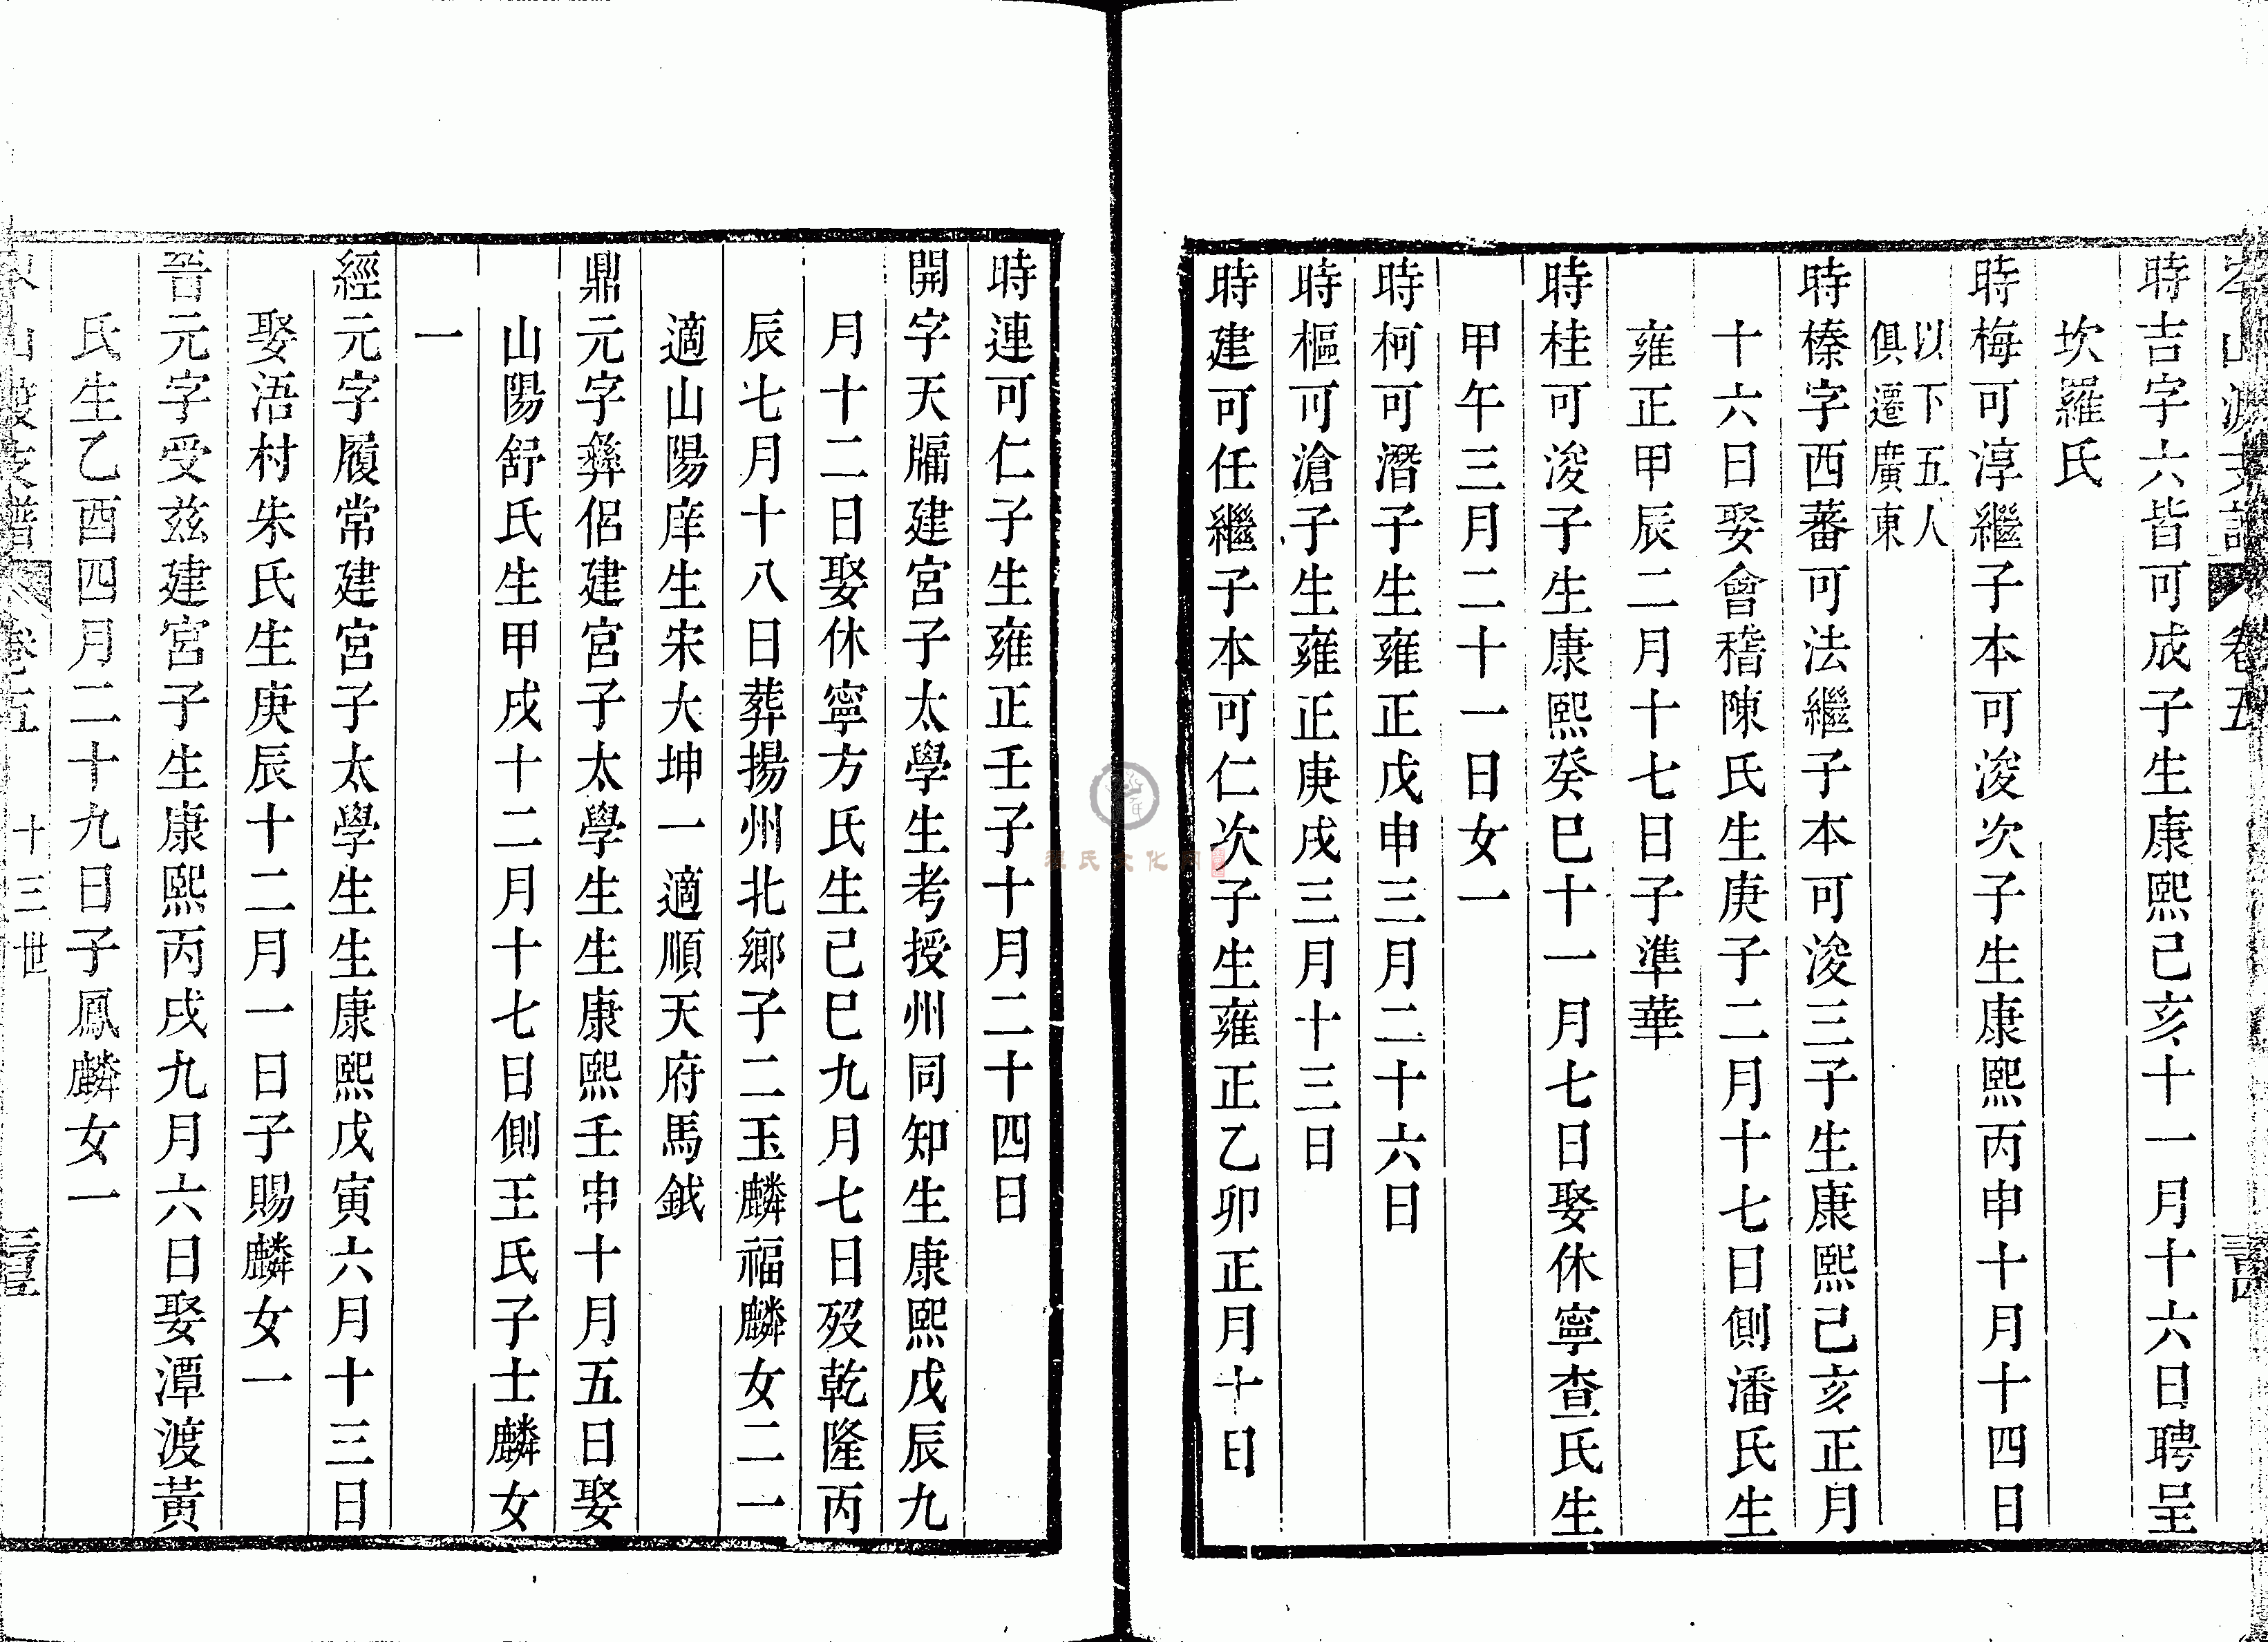 山渡支譜 卷五
時吉字六皆可成子生康熙己亥十一月十六日聘呈
坎羅氏
時梅可淳繼子本可浚次子生康熙丙申十月十四日
以下五人
俱遷廣東
時榛字西蕃可法繼子本可浚三子生康熙己亥正月
十六日娶會稽陳氏生庚子二月十七日側潘氏生
雍正甲辰二月十七日子準華
時桂可浚子生康熙癸巳十一月七日娶休寧查氏生
甲午三月二十一日女一
時柯可潛子生雍正戊申三月二十六日
時樞可滄子生雍正庚戌三月十三日
時建可任繼子本可仁次子生雍正乙卯正月十日
時連可仁子生雍正壬子十月二十四日
開字天牖建宮子太學生考授州同知生康熙戊辰九
月十二日娶休寧方氏生己巳九月七日歿乾隆丙
辰七月十八日葬揚州北鄉子二玉麟福麟女二一
適山陽庠生宋大坤一適順天府馬鉞
鼎元字彝侶建宮子太學生生康熙壬申十月五日娶
山陽舒氏生甲戌十二月十七日側王氏子士麟女
一
經元字履常建宮子太學生生康熙戊寅六月十三日
娶浯村朱氏生庚辰十二月一日子賜麟女一
晉元字受茲建宮子生康熙丙戌九月六日娶潭渡黃
氏生乙酉四月二十九日子鳳麟女一
山渡支譜 卷五 十三世